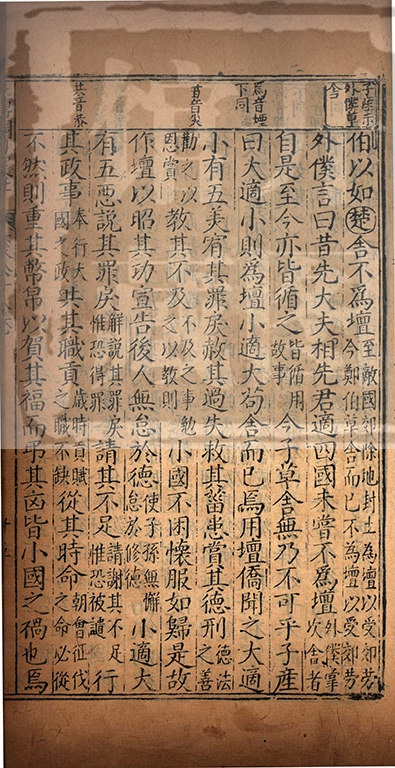 伯以如楚舍不爲壇至敵國郊除地封土為壇以受郊勞今鄭伯草舍而已不為壇以受郊勞
外僕言曰昔先大夫相先君適四國未嘗不爲壇外僕掌次舍者
自是至今亦皆循之皆循用故事今子草舍無乃不可乎子產
焉音煙下同
曰大適小則爲壇小適大苟舍而已焉用壇僑聞之大適
小有五美宥其罪戾赦其過失救其菑患賞其德刑德法之善
菑音災
勸之以恩賞教其不及不及之事勉之以教則小國不困懷服如歸是故
作壇以昭其功宣告後人無怠於德使子孫無懈怠於修德小適大
有五惡說其罪戾解說其罪戾惟恐得罪請其不足請謝其不足惟恐被譴行
共音恭
其政事奉行大國之政共其職貢歲時貢賦之職不缺從其時命朝會征伐之命必從
不然則重其幣帛以賀其福而弔其凶皆小國之禍也焉